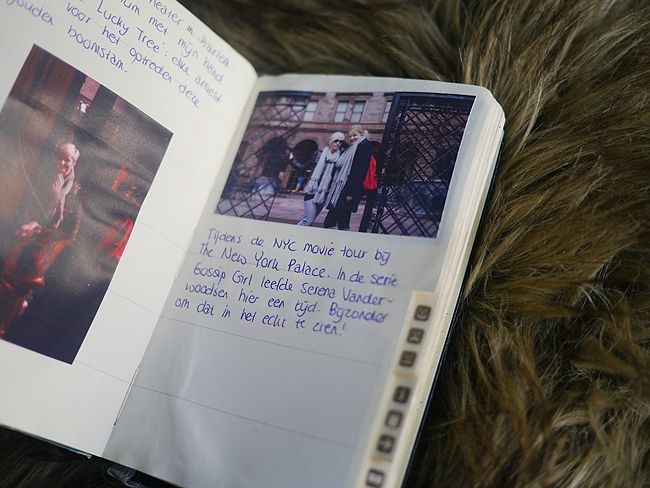 theater in Harlem.
met mijn hand
Lucky Tree': elke artiest
voor het optreden deze
gouden boomstam.
Tijdens de NYC movie tour bij
The New York Palace. In de serie
Gossip Girl leefde Serena Vander-
woodsen hier een tijd. Bijzonder
om dat in het echt te zien!